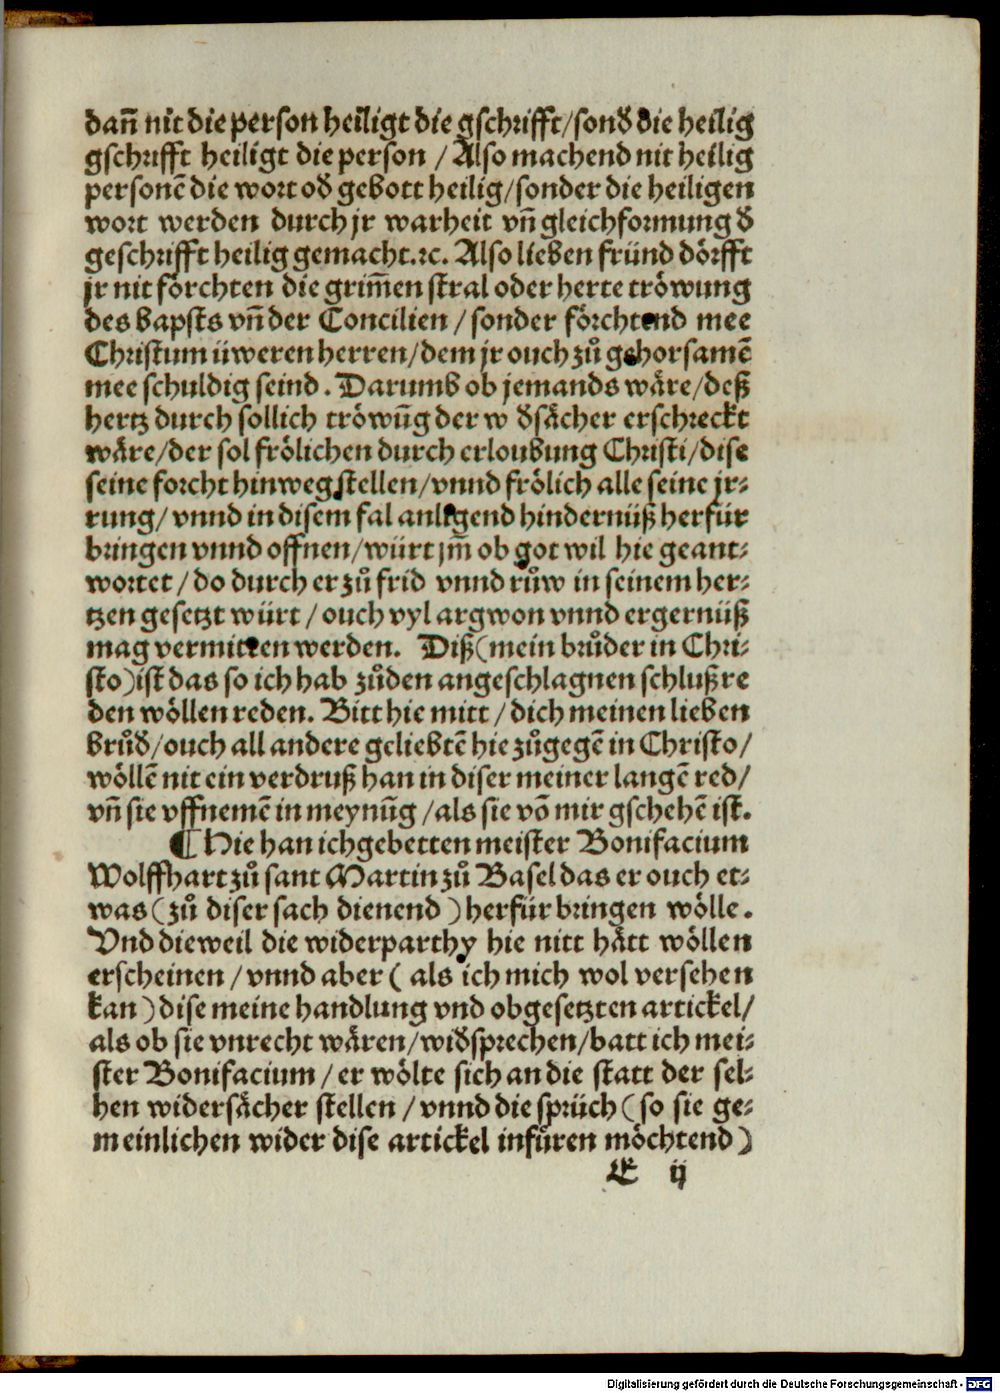 dañ nit die person heiligt die gschrifft/sond̕ die heilig
gschrifft heiligt die person / Also machend nit heilig
personē die wort od̕ gebott heilig/sonder die heiligen
wort werden durch jr warheit vñ gleichformung d̕
geschrifft heilig gemacht.ꝛc. Also lieben fründ dörfft
jr nit förchten die grim̄en stral oder herte tröwung
des bapsts vñ der Concilien / sonder förchtend mee
Christum üweren herren/dem jr ouch zů gehorsamē
mee schuldig seind. Darumb ob jemands wäre/deß
hertz durch sollich tröwūg der w d̕sächer erschreckt
wäre/der sol frölichen durch erloubung Christi/dise
seine forcht hinweg stellen/vnnd frölich alle seine jr⸗
rung/vnnd in disem fal anligend hindernüß herfür
bringen vnnd offnen/würt jm̄ ob got wil hie geant⸗
wortet / do durch er zů frid vnnd růw in seinem her⸗
tzen gesetzt würt / ouch vyl argwon vnnd ergernüß
mag vermitten werden. Diß(mein brůder in Chri⸗
sto)ist das so ich hab zůden angeschlagnen schlußre
den wöllen reden. Bitt hie mitt / dich meinen lieben
brůd̕/ouch all andere geliebtē hie zůgegē in Christo/
wöllē nit ein verdruß han in diser meiner langē red/
vñ sie vffnemē in meynūg /als sie võ mir gschehē ist.
¶ Hie han ich gebetten meister Bonifacium
Wolffhart zů sant Martin zů Basel das er ouch et⸗
was (zů diser sach dienend) herfür bringen wölle.
Vnd dieweil die widerparthy hie nitt hätt wöllen
erscheinen / vnnd aber ( als ich mich wol versehen
kan) dise meine handlung vnd obgesetzten artickel/
als ob sie vnrecht wären/wid̕sprechen/batt ich mei⸗
ster Bonifacium / er wölte sich an die statt der sel⸗
hen widersächer stellen / vnnd die sprüch (so sie ge⸗
meinlichen wider dise artickel infüren möchtend)
E ij
Digitalisierung gefördert durch die Deutsche Forschungsgemeinschaft - DFG